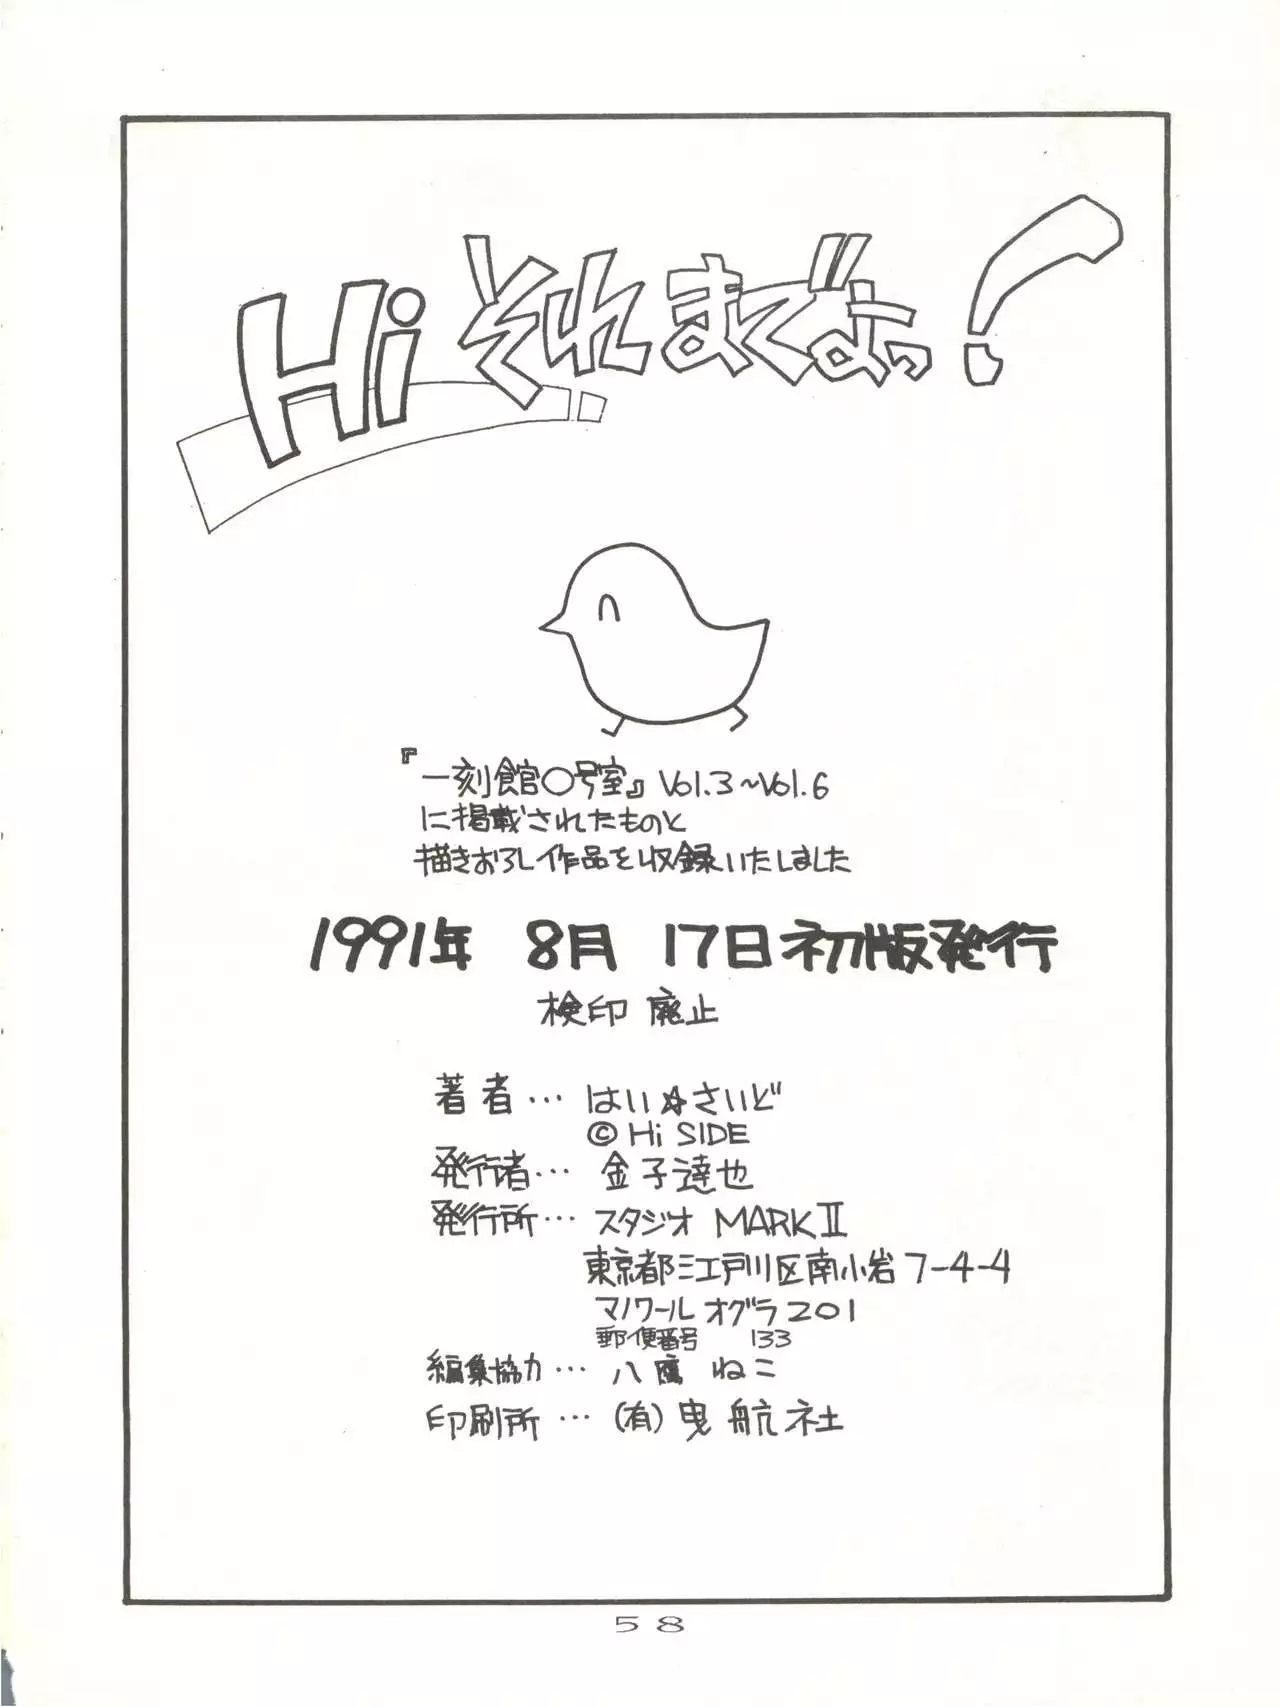 Hi それまでよっ!
『一刻館○号室』Vol.3〜Vol.6
に掲載されたものと
描きおろし作品を収録いたしました
1991年 8月 17日初版発行
検印廃止
著者… はい☆さいど
© Hi SIDE
発行者… 金子達也
発行所… スタジオ MARK II
東京都江戸川区南小岩7-4-4
マノワール オグラ201
郵便番号 133
編集協力… 八鷹 ねこ
印刷所… (有)曳航社
58